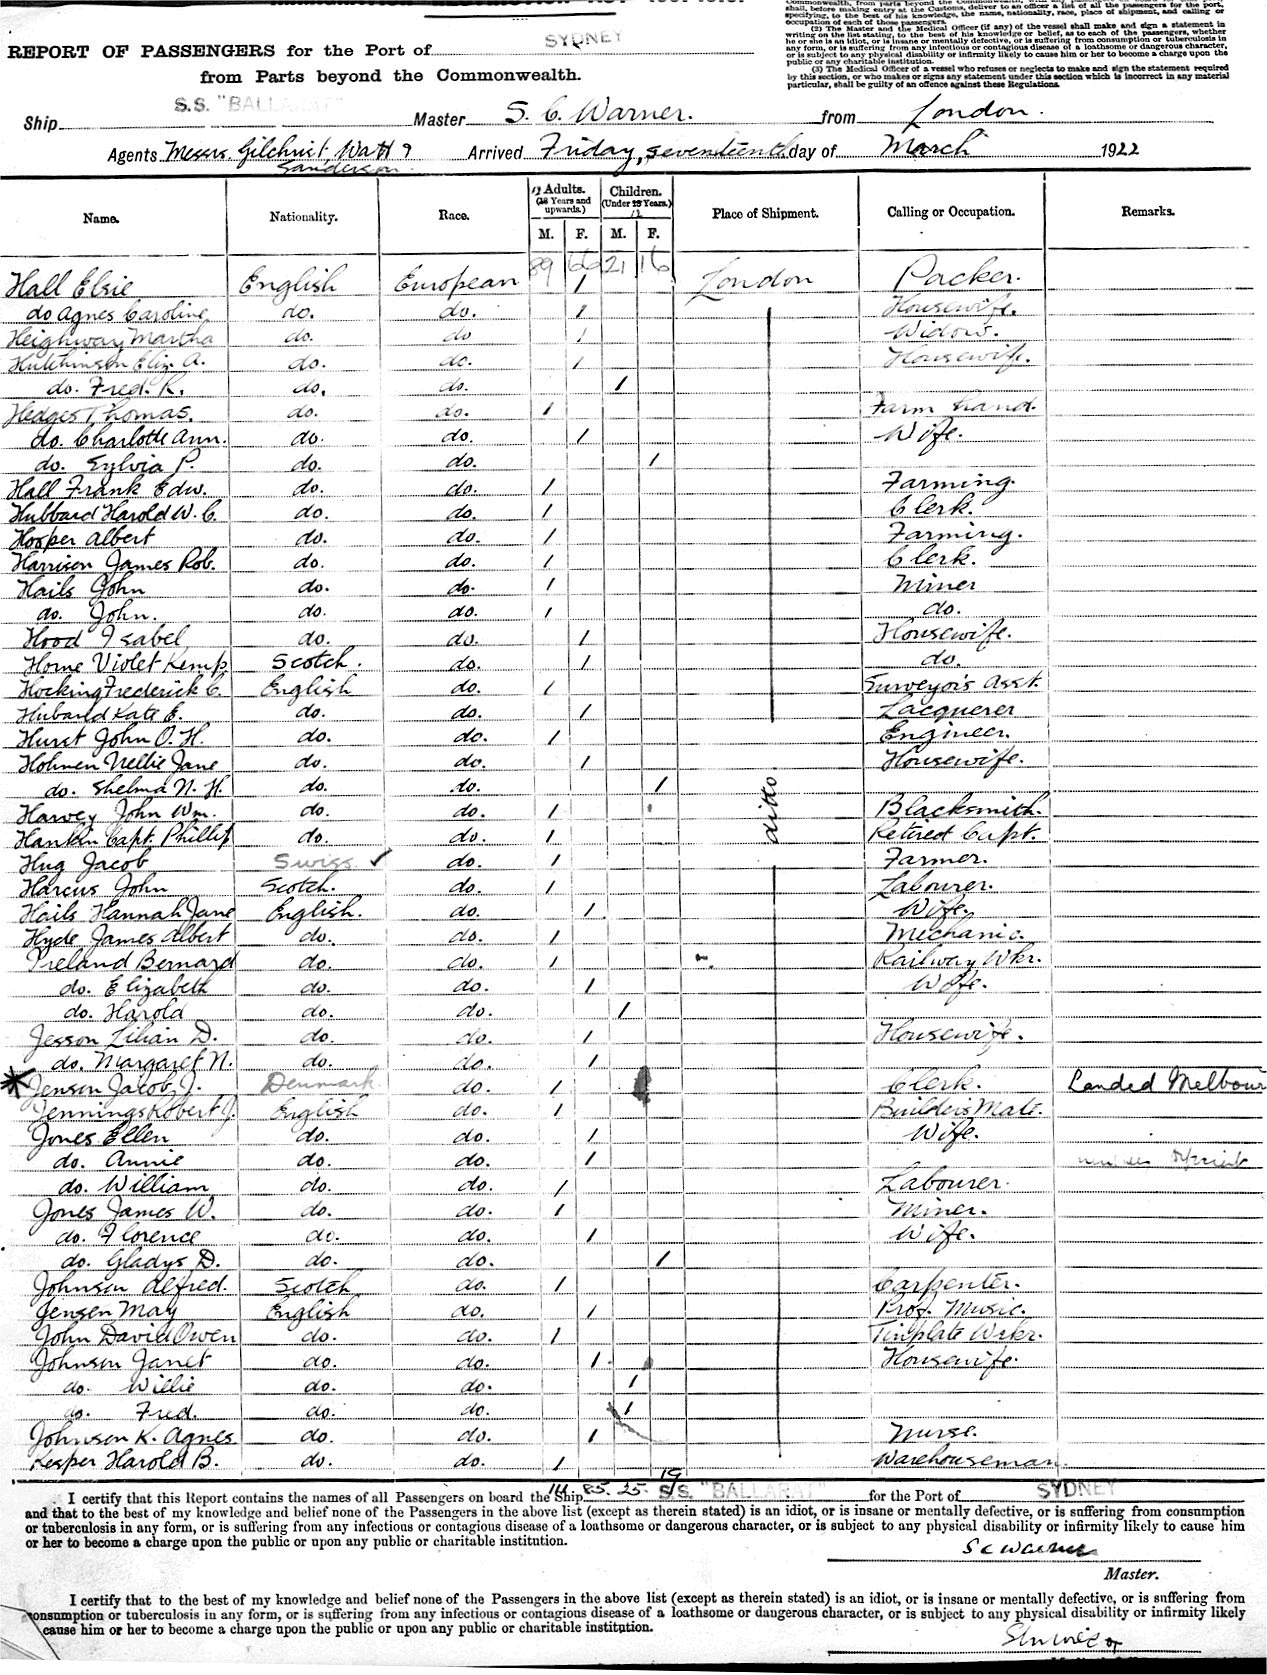 REPORT OF PASSENGERS for the Port of SYDNEY
from Parts beyond the Commonwealth.
Commonwealth, from parts beyond the Commonwealth,
shall, before making entry at the Customs, deliver to an officer a list of all the passengers for the port,
specifying, to the best of his knowledge, the name, nationality, race, place of shipment, and calling or
occupation of each of those passengers.
(2) The Master and the Medical Officer (if any) of the vessel shall make and sign a statement in
writing on the list stating, to the best of his knowledge or belief, as to each of the passengers, whether
he or she is an idiot, or is insane or mentally defective, or is suffering from consumption or tuberculosis in
any form, or is suffering from any infectious or contagious disease of a loathsome or dangerous character,
or is subject to any physical disability or infirmity likely to cause him or her to become a charge upon the
public or any charitable institution.
(3) The Medical Officer of a vessel who refuses or neglects to make and sign the statement required
by this section, or who makes or signs any statement under this section which is incorrect in any material
particular, shall be guilty of an offence against these Regulations.
Ship S.S. "BALLARAT" Master S. C. Warner. from London.
Agents Messrs. Gilchrist, Watt & Sanderson. Arrived Friday, seventeenth day of March 1922
Name. Nationality. Race. 12 Adults. (18 Years and upwards.) M. F. Children. (Under 18 Years.) 12 M. F. Place of Shipment. Calling or Occupation. Remarks.
89 66 21 16
Hall Elsie English European 1 London Packer.
do Agnes Caroline do. do. 1 Housewife.
Heighway Martha do. do 1 Widow.
Hutchinson Eliz. A. do. do. 1 Housewife.
do. Fred. R. do. do. 1
Hedges Thomas. do. do. 1 Farm hand.
do. Charlotte Ann. do. do. 1 Wife.
do. Sylvia P. do. do. 1
Hall Frank Edw. do. do. 1 Farming.
Hubbard Harold W. C. do. do. 1 Clerk.
Hooper Albert do. do. 1 Farming.
Harrison James Rob. do. do. 1 Clerk.
Hails John do. do. 1 Miner
do. John. do. do. 1 do.
Hood Isabel do. do. 1 Housewife.
Horne Violet Kemp Scotch. do. 1 do.
Hocking Frederick C. English do. 1 Surveyor's Asst.
Huband Kate E. do. do. 1 Lacquerer
Hurst John O. H. do. do. 1 Engineer.
Hohnen Nellie Jane do. do. 1 Housewife.
do. Thelma N. H. do. do. 1
ditto
Harvey John Wm. do. do. 1 Blacksmith.
Hankin Capt. Phillip do. do. 1 Retired Capt.
Hug Jacob Swiss ✓ do. 1 Farmer.
Harcus John Scotch. do. 1 Labourer.
Hails Hannah Jane English. do. 1 Wife.
Hyde James Albert do. do. 1 Mechanic.
Ireland Bernard do. do. 1 Railway Wkr.
do. Elizabeth do. do. 1 Wife.
do. Harold do. do. 1
Jesson Lilian D. do. do. 1 Housewife.
do. Margaret N. do. do. 1
* Jensen Jacob J. Denmark do. 1 Clerk. Landed Melbour
Jennings Robert J. English do. 1 Builder's Mate.
Jones Ellen do. do. 1 Wife.
do. Annie do. do. 1
do. William do. do. 1 Labourer.
Jones James W. do. do. 1 Miner.
do. Florence do. do. 1 Wife.
do. Gladys D. do. do. 1
Johnson Alfred. Scotch do. 1 Carpenter.
Jensen May English do. 1 Prof. Music.
John David Owen do. do. 1 Tinplate Wrkr.
Johnson Janet do. do. 1 Housewife.
do. Willie do. do. 1
do. Fred. do. do. 1
Johnson K. Agnes. do. do. 1 Nurse.
Kesper Harold B. do. do. 1 Warehouseman.
111 85. 25 19
I certify that this Report contains the names of all Passengers on board the Ship S/S. "BALLARAT" for the Port of SYDNEY
and that to the best of my knowledge and belief none of the Passengers in the above list (except as therein stated) is an idiot, or is insane or mentally defective, or is suffering from consumption
or tuberculosis in any form, or is suffering from any infectious or contagious disease of a loathsome or dangerous character, or is subject to any physical disability or infirmity likely to cause him
or her to become a charge upon the public or upon any public or charitable institution.
S C Warner
Master.
I certify that to the best of my knowledge and belief none of the Passengers in the above list (except as therein stated) is an idiot, or is insane or mentally defective, or is suffering from
consumption or tuberculosis in any form, or is suffering from any infectious or contagious disease of a loathsome or dangerous character, or is subject to any physical disability or infirmity likely
cause him or her to become a charge upon the public or upon any public or charitable institution.